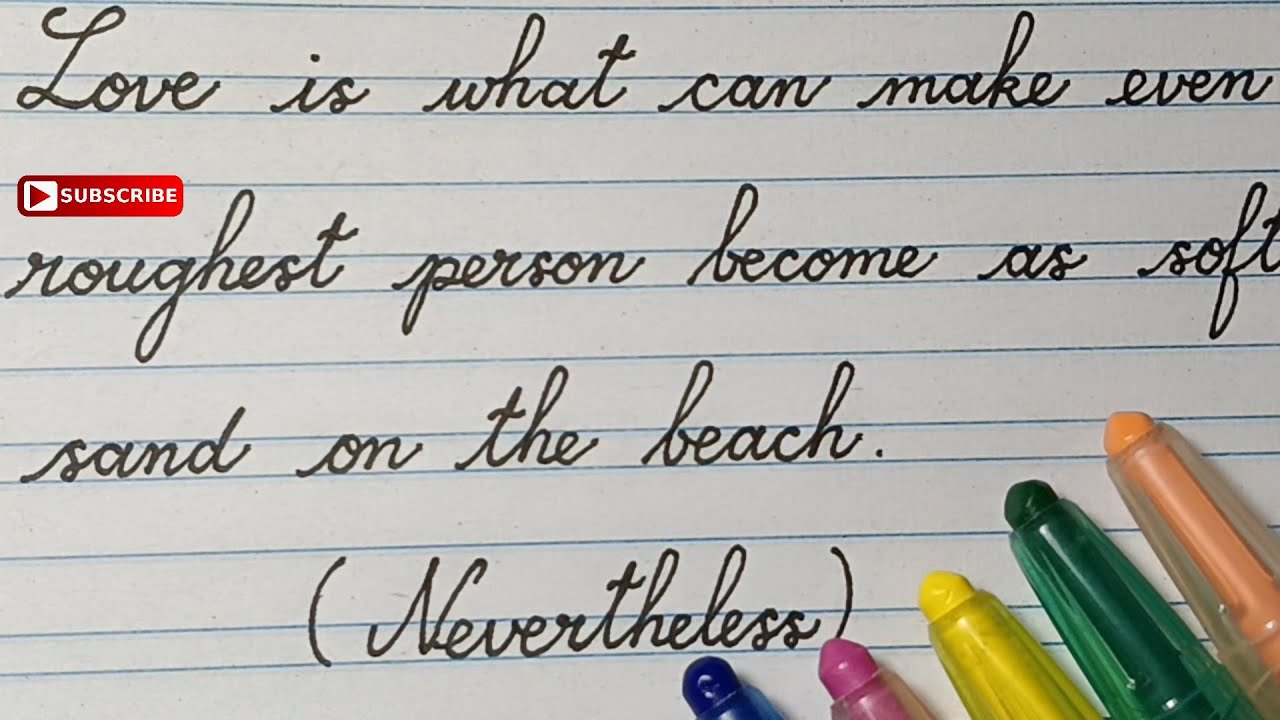 Love is what can make even
SUBSCRIBE
roughest person become as soft
sand on the beach.
(Nevertheless)